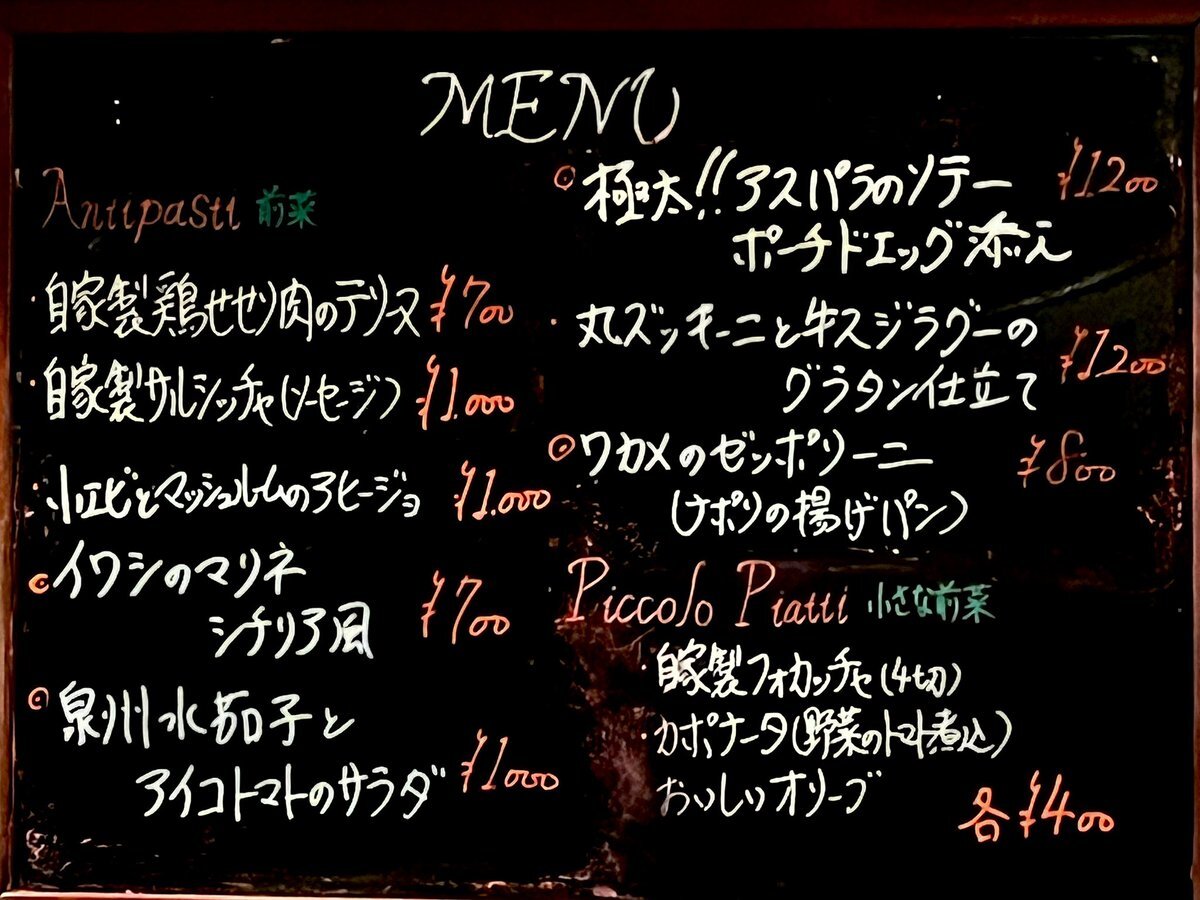 MENU
Antipasti 前菜
・自家製鶏せせり肉のテリーヌ ¥700
・自家製サルシッチャ(ソーセージ) ¥1.000
・小エビとマッシュルームのアヒージョ ¥1.000
◎イワシのマリネ
シチリア風 ¥700
◎泉州水茄子と
アイコトマトのサラダ ¥1000
◎極太!!アスパラのソテー ¥1200
ポーチドエッグ添え
・丸ズッキーニと牛スジラグーの
グラタン仕立て ¥1200
◎ワカメのゼッポリーニ ¥800
(ナポリの揚げパン)
Piccolo Piatti 小さな前菜
・自家製フォカッチャ(4切)
・カポナータ(野菜のトマト煮込)
おいしいオリーブ
各¥400